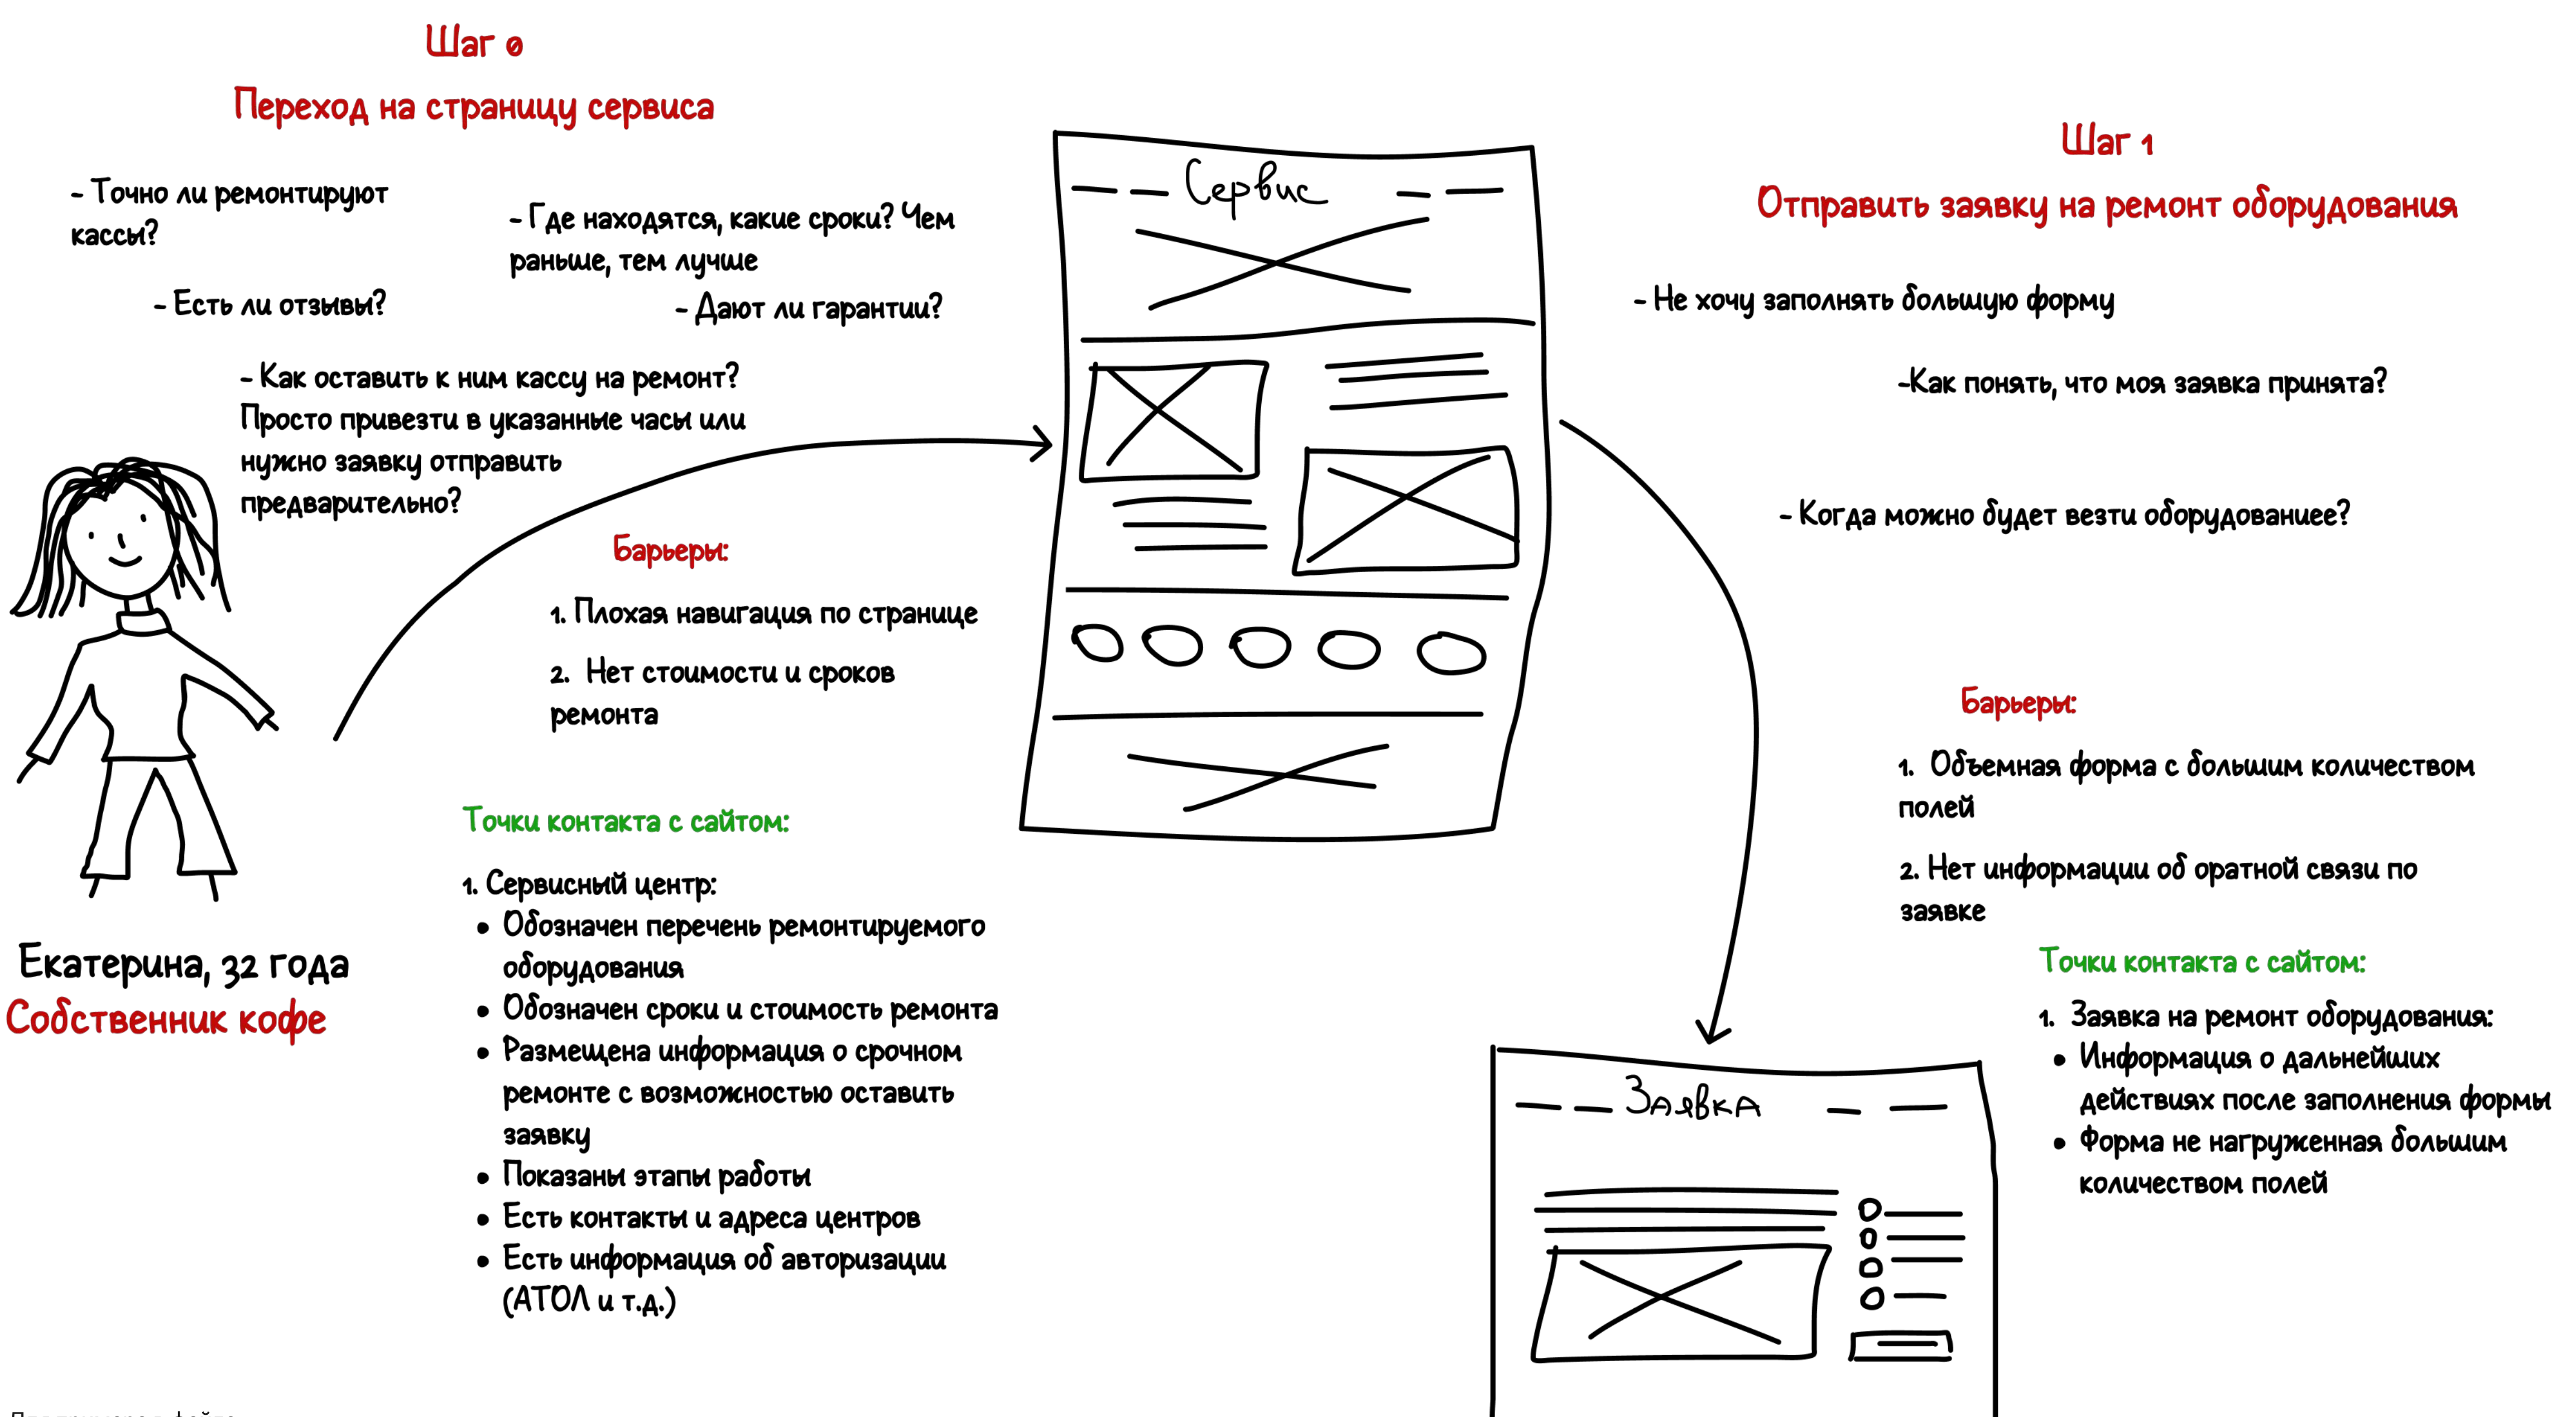 Шаг 0
Переход на страницу сервиса
- Точно ли ремонтируют
кассы?
- Где находятся, какие сроки? Чем
раньше, тем лучше
- Есть ли отзывы?
- Дают ли гарантии?
- Как оставить к ним кассу на ремонт?
Просто привезти в указанные часы или
нужно заявку отправить
предварительно?
Барьеры:
1. Плохая навигация по странице
2. Нет стоимости и сроков
ремонта
Точки контакта с сайтом:
1. Сервисный центр:
• Обозначен перечень ремонтируемого
оборудования
• Обозначен сроки и стоимость ремонта
• Размещена информация о срочном
ремонте с возможностью оставить
заявку
• Показаны этапы работы
• Есть контакты и адреса центров
• Есть информация об авторизации
(АТОЛ и т.д.)
Екатерина, 32 года
Собственник кофе
Сервис
Шаг 1
Отправить заявку на ремонт оборудования
- Не хочу заполнять большую форму
-Как понять, что моя заявка принята?
- Когда можно будет везти оборудованиее?
Барьеры:
1. Объемная форма с большим количеством
полей
2. Нет информации об оратной связи по
заявке
Точки контакта с сайтом:
1. Заявка на ремонт оборудования:
• Информация о дальнейших
действиях после заполнения формы
• Форма не нагруженная большим
количеством полей
Заявка